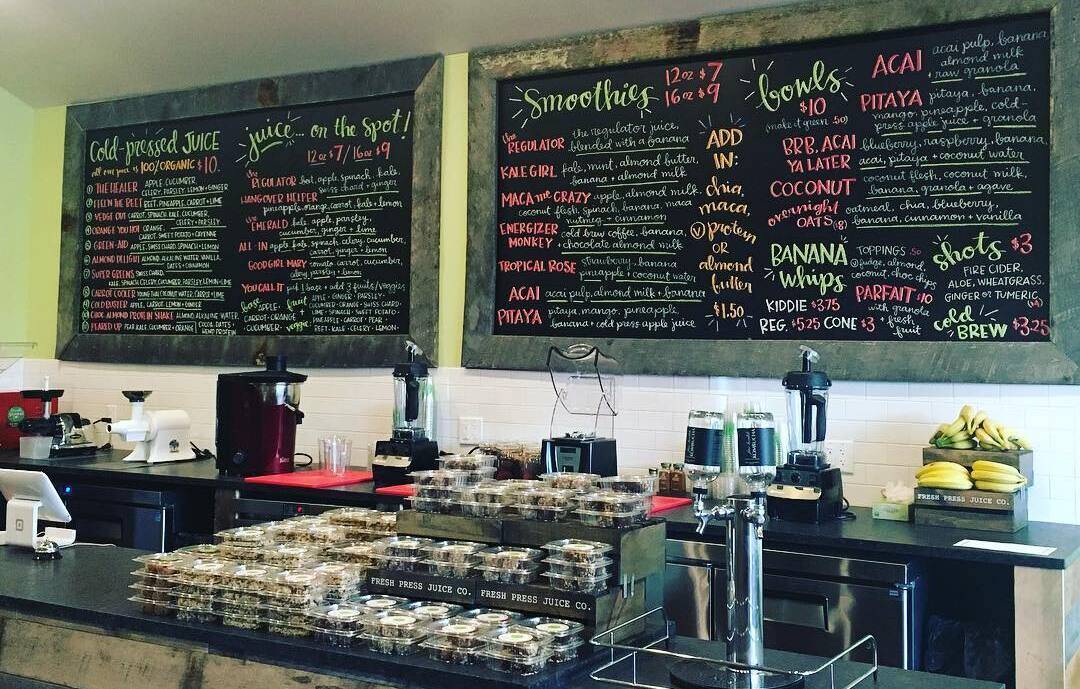 Cold-pressed JUICE
100% ORGANIC $10.
THE HEALER APPLE, CUCUMBER,
CELERY, PARSLEY, LEMON + GINGER
FEELIN THE BEET BEET, PINEAPPLE, CARROT + LIME
VEDGE OUT CARROT, SPINACH, KALE, CUCUMBER,
CELERY + PARSLEY
ORANGE YOU HOT ORANGE,
CARROT, SWEET POTATO + CAYENNE
GREEN-AID APPLE, SWISS CHARD, SPINACH + LEMON
ALMOND DELIGHT ALMOND, ALKALINE WATER, VANILLA,
DATES + CINNAMON
SUPER GREENS SWISS CHARD,
KALE, SPINACH, CUCUMBER, PARSLEY, LEMON + LIME
CARROT COOLER YOUNG THAI COCONUT WATER, CARROT + LIME
COLD BUSTER APPLE, CARROT, LEMON + GINGER
CHOC. ALMOND PROTEIN SHAKE ALMOND, ALKALINE WATER,
COCOA, DATES +
HEMP PROTEIN
PEARED UP PEAR, KALE, CUCUMBER + ORANGE
juice... on the spot!
12 oz $7/ 16 oz $9
the REGULATOR apple, spinach, kale,
swiss chard + ginger
HANGOVER HELPER
pineapple, orange, carrot, kale + lemon
the EMERALD kale, apple, parsley,
cucumber, ginger + lime
ALL-IN apple, kale, spinach, celery, cucumber,
carrot, ginger + lemon
GOOD GIRL MARY tomato, carrot, cucumber,
celery, parsley + lemon
YOU CALL IT pick 1 base + add 3 fruits/veggies
base
APPLE
CARROT
ORANGE
CUCUMBER
fruit
veggie
APPLE - GINGER - PARSLEY
CUCUMBER - ORANGE - SWISS CHARD
LIME - SPINACH - SWEET POTATO
PINEAPPLE - CARROT - PEAR
BEET - KALE - CELERY - LEMON
Smoothies
12 oz $7
16 oz $9
the REGULATOR the regulator juice,
blended with a banana
KALE GIRL kale, mint, almond butter,
banana + almond milk
MACA me CRAZY apple, almond milk,
coconut flesh, spinach, banana, maca
nutmeg + cinnamon
ENERGIZER MONKEY cold brew coffee, banana,
+ chocolate almond milk
TROPICAL ROSE strawberry, banana
pineapple + coconut water
ACAI acai pulp, almond milk + banana
PITAYA pitaya, mango, pineapple,
banana + cold press apple juice
ADD
IN:
chia,
maca,
(V) protein
OR
almond
butter
$1.50
bowls
$10
(make it green .50)
ACAI acai pulp, banana,
almond milk
+ raw granola
PITAYA pitaya, banana,
mango, pineapple, cold-
press apple juice + granola
BRB, ACAI YA LATER blueberry, raspberry, banana,
acai, pitaya + coconut water
COCONUT coconut flesh, coconut milk,
banana, granola + agave
overnight OATS ($8) oatmeal, chia, blueberry,
banana, cinnamon + vanilla
BANANA
whips
TOPPINGS .50
@fudge, almond,
coconut, choc chips
KIDDIE $3.75
REG. $5.25 CONE $3
PARFAIT $10
with granola
+ fresh
fruit
shots $3
FIRE CIDER,
ALOE, WHEATGRASS,
GINGER OR TUMERIC
cold
BREW $3.25
FRESH PRESS JUICE CO.
FRESH PRESS JUICE CO.
FRESH PRESS JUICE CO.
KOMBUCHA